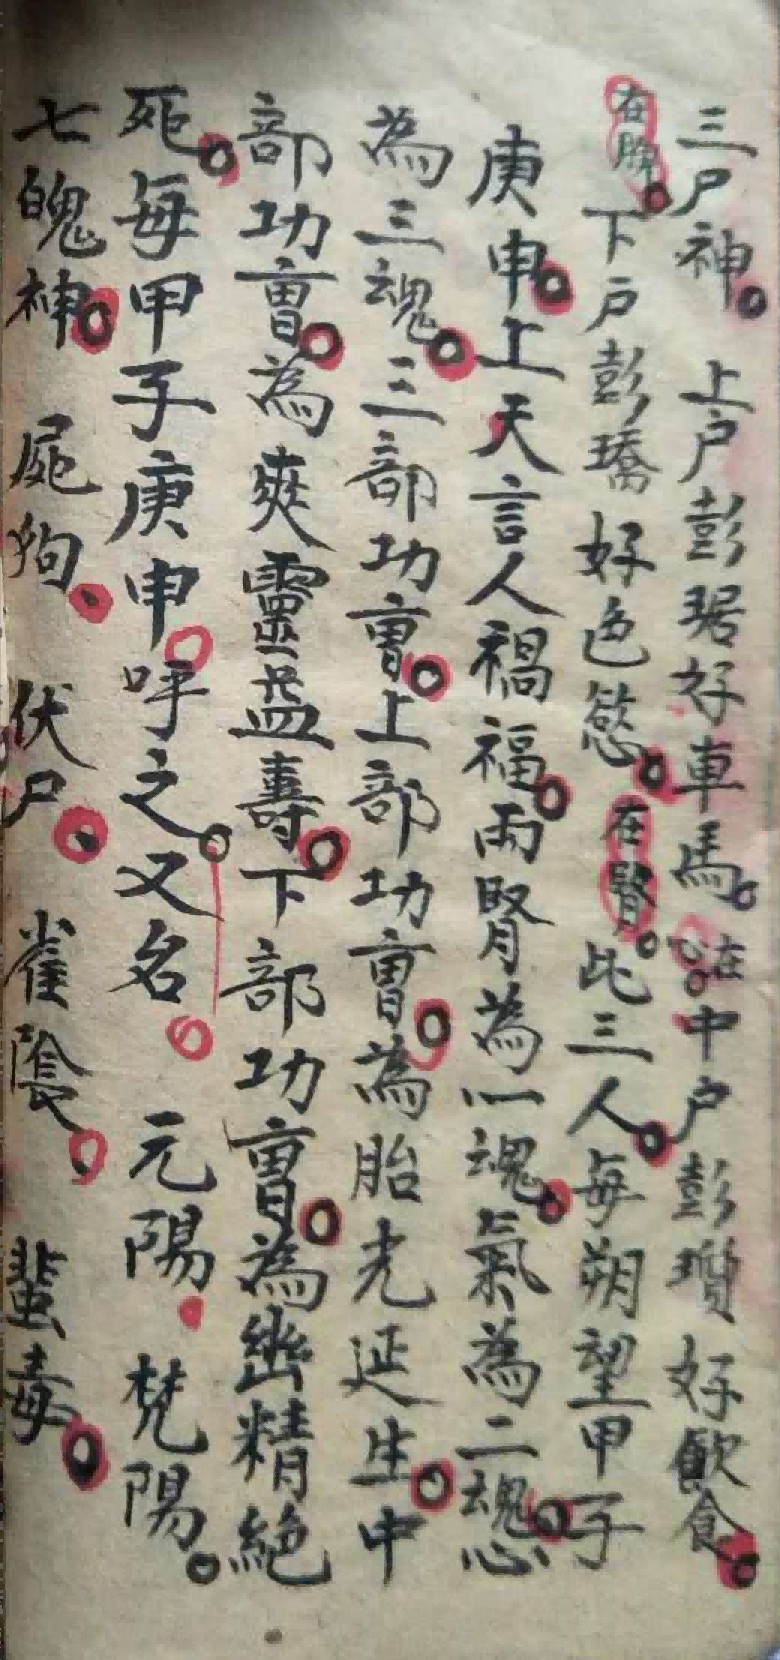 三尸神。上户彭琚好車馬。在。中户彭瓆好飲食。
在脾。下户彭琦好色慾。在腎。此三人。每朔望甲子
庚申。上天言人禍福。兩腎為一魂。氣為二魂。心
為三魂。三部功曹。上部功曹。為胎光延生。中
部功曹。為爽靈益壽。下部功曹。為幽精絕
死。每甲子庚申。呼之。又名。元陽。梵陽。
七魄神。屍狗、伏尸、雀陰、蜚毒。